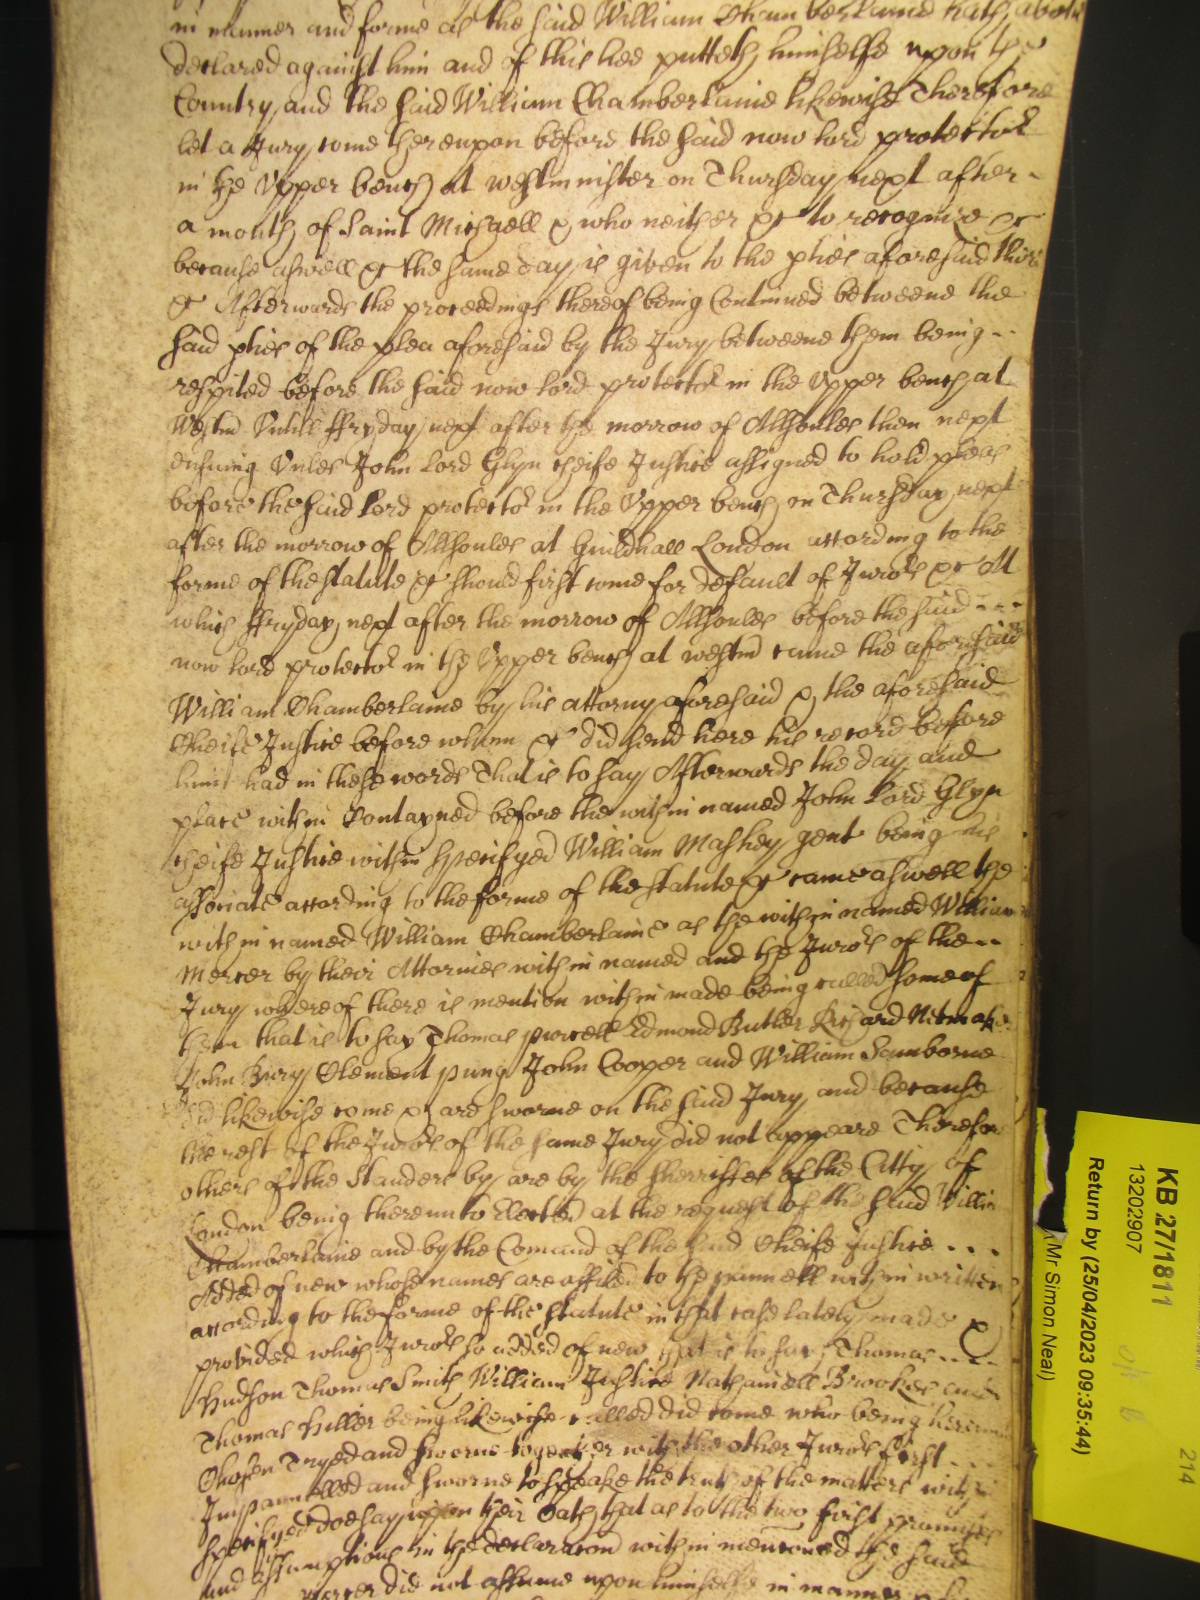 in manner and forme as the said William Chamberlaine hath above
declared against him and of this hee putteth himselfe upon the
Country and the said William Chamberlaine likewise Therefore
let a Jury come thereupon before the said now lord protector
in the Upper bench at westminister on Thursday next after
a month of Saint Michaell & who neither &c to recognize &c
because aswell &c the same day is given to the pties aforesaid there
&c Afterwards the proceedings thereof being Continued betweene the
said pties of the plea aforesaid by the Jury betweene them being
respited before the said now lord protector in the Upper bench at
Westm Untill ffryday next after the morrow of Allsoules then next
ensuing Unles John Lord Glyn cheife Justice assigned to hold pleas
before the said Lord protector in the Upper bench on Thursday next
after the morrow of Allsoules at Guildhall London according to the
forme of the statute &c should first come for default of Jurors &c At
which ffryday next after the morrow of Allsoules before the said
now lord protector in the Upper bench at westm came the aforesaid
William Chamberlaine by his attorny aforesaid & the aforesaid
Cheife Justice before whom &c did send here his record before
him had in these words That is to say Afterwards the day and
place within Contayned before the within named John Lord Glyn
cheife Justice within specifyed William Maskey gent being his
associate according to the forme of the statute &c came aswell the
within named William Chamberlaine as the within named William
Mercer by their Attornies within named and the Jurors of the
Jury whereof there is mention within made being called some of
them that is to say Thomas purcell Edmond Butler Richard
John Bury Clement pung John Cooper and William Samborne
did likewise come & are sworne on the said Jury and because
the rest of the Jurors of the same Jury did not appeare Therefore
others of the Standers by are by the sherriffes of the Citty of
London being thereunto Elected at the request of the said William
Chamberlaine and by the Comand of the said Cheife Justice
Added of new whose names are affiled to the pannell within written
according to the forme of the statute in that case lately made &
provided which Jurors so added of new that is to say Thomas
Hudson Thomas Smith William Justice Nathaniell Brookes and
Thomas Hillier being likewise called did come who being hereunto
Chosen Tryed and sworne together with the other Jurors first
Impannelled and sworne to speake the truth of the matters within
specifyed doe say upon their Oath that as to the two first promises
and assumptions in the declaracon within mencioned the said
Mercer did not assume upon himselfe in manner
KB 27/1811
13202907
Return by (25/04/2023 09:35:44)
(Mr Simon Neal)
214